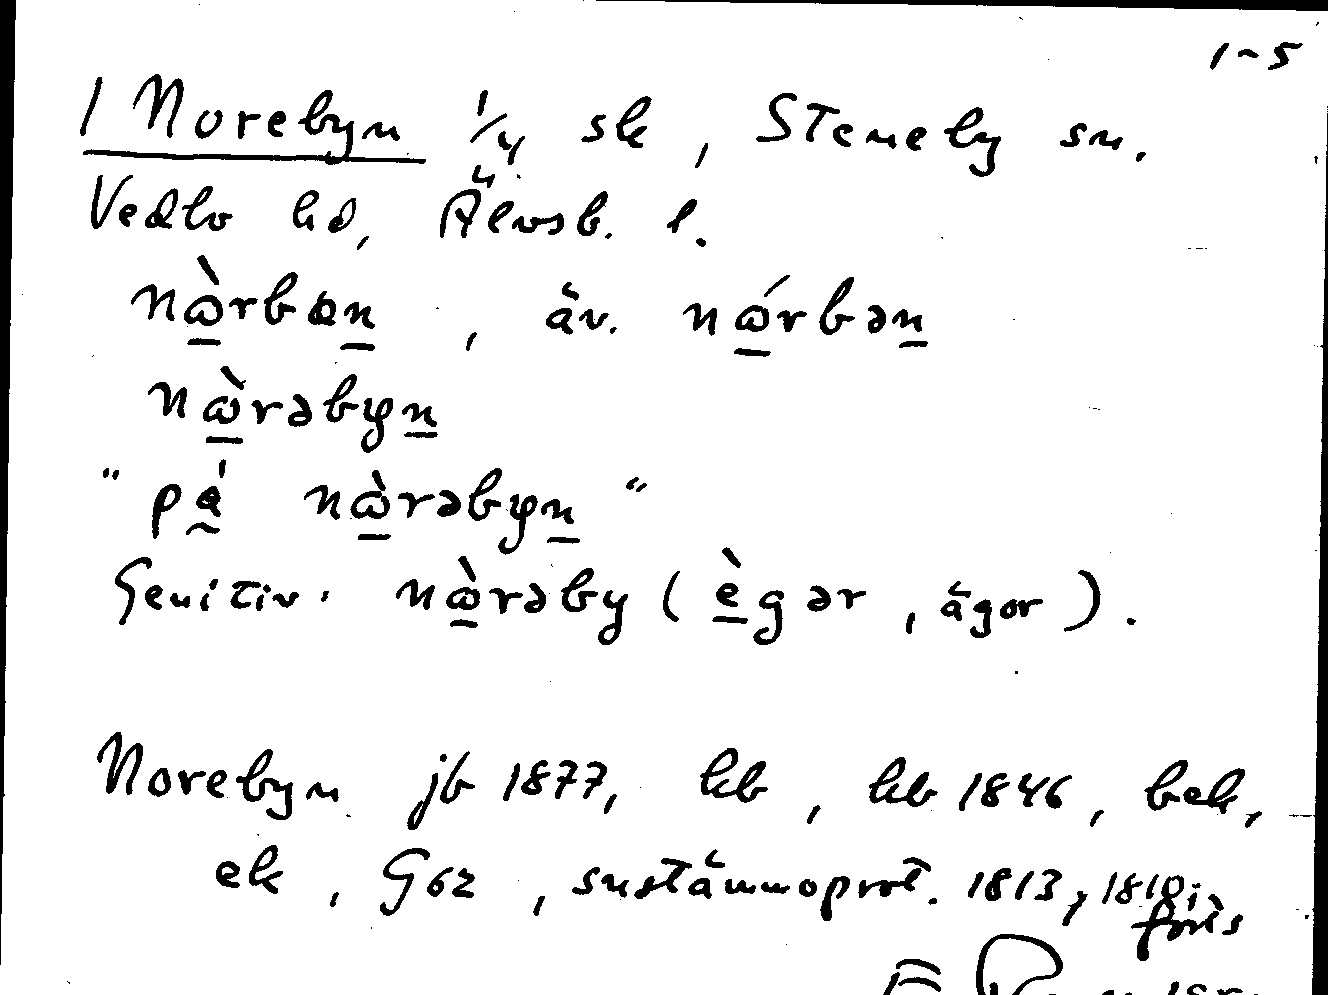 1-5
1 Norebyn 1/4 sk, Steneby sn.
Vedbo hd, Älvsb. l.
nὼ̱rbəṉ, äv. nώ̱rbəṉ
nὼ̱rəbyṉ
" på nὼ̱rəbyṉ "
Genitiv. nὼ̱rəby (è̱gər, ägor).
Norebyn jb 1877, kb, kb 1846, bek,
ek, G62, snstämmoprot. 1813, 1810;
forts